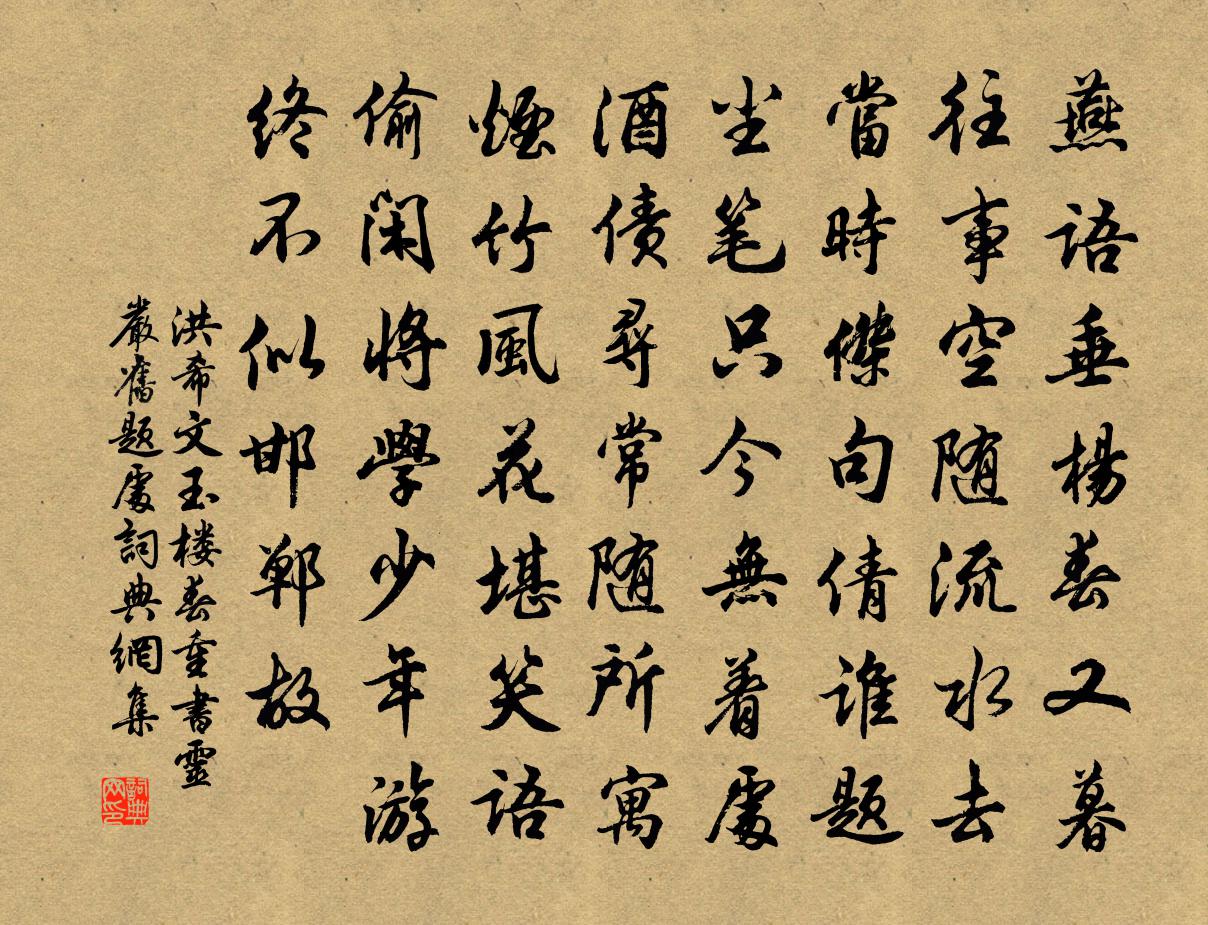 燕語垂楊春又暮
往事空随流水去
當時傑句倩誰題
尘笔只今無着處
酒债尋常随所寓
煙竹風花堪笑語
偷閑將學少年游
終不似邯鄲故
洪希文玉楼春重書靈
嚴舊題處詞典網集
詞典网印